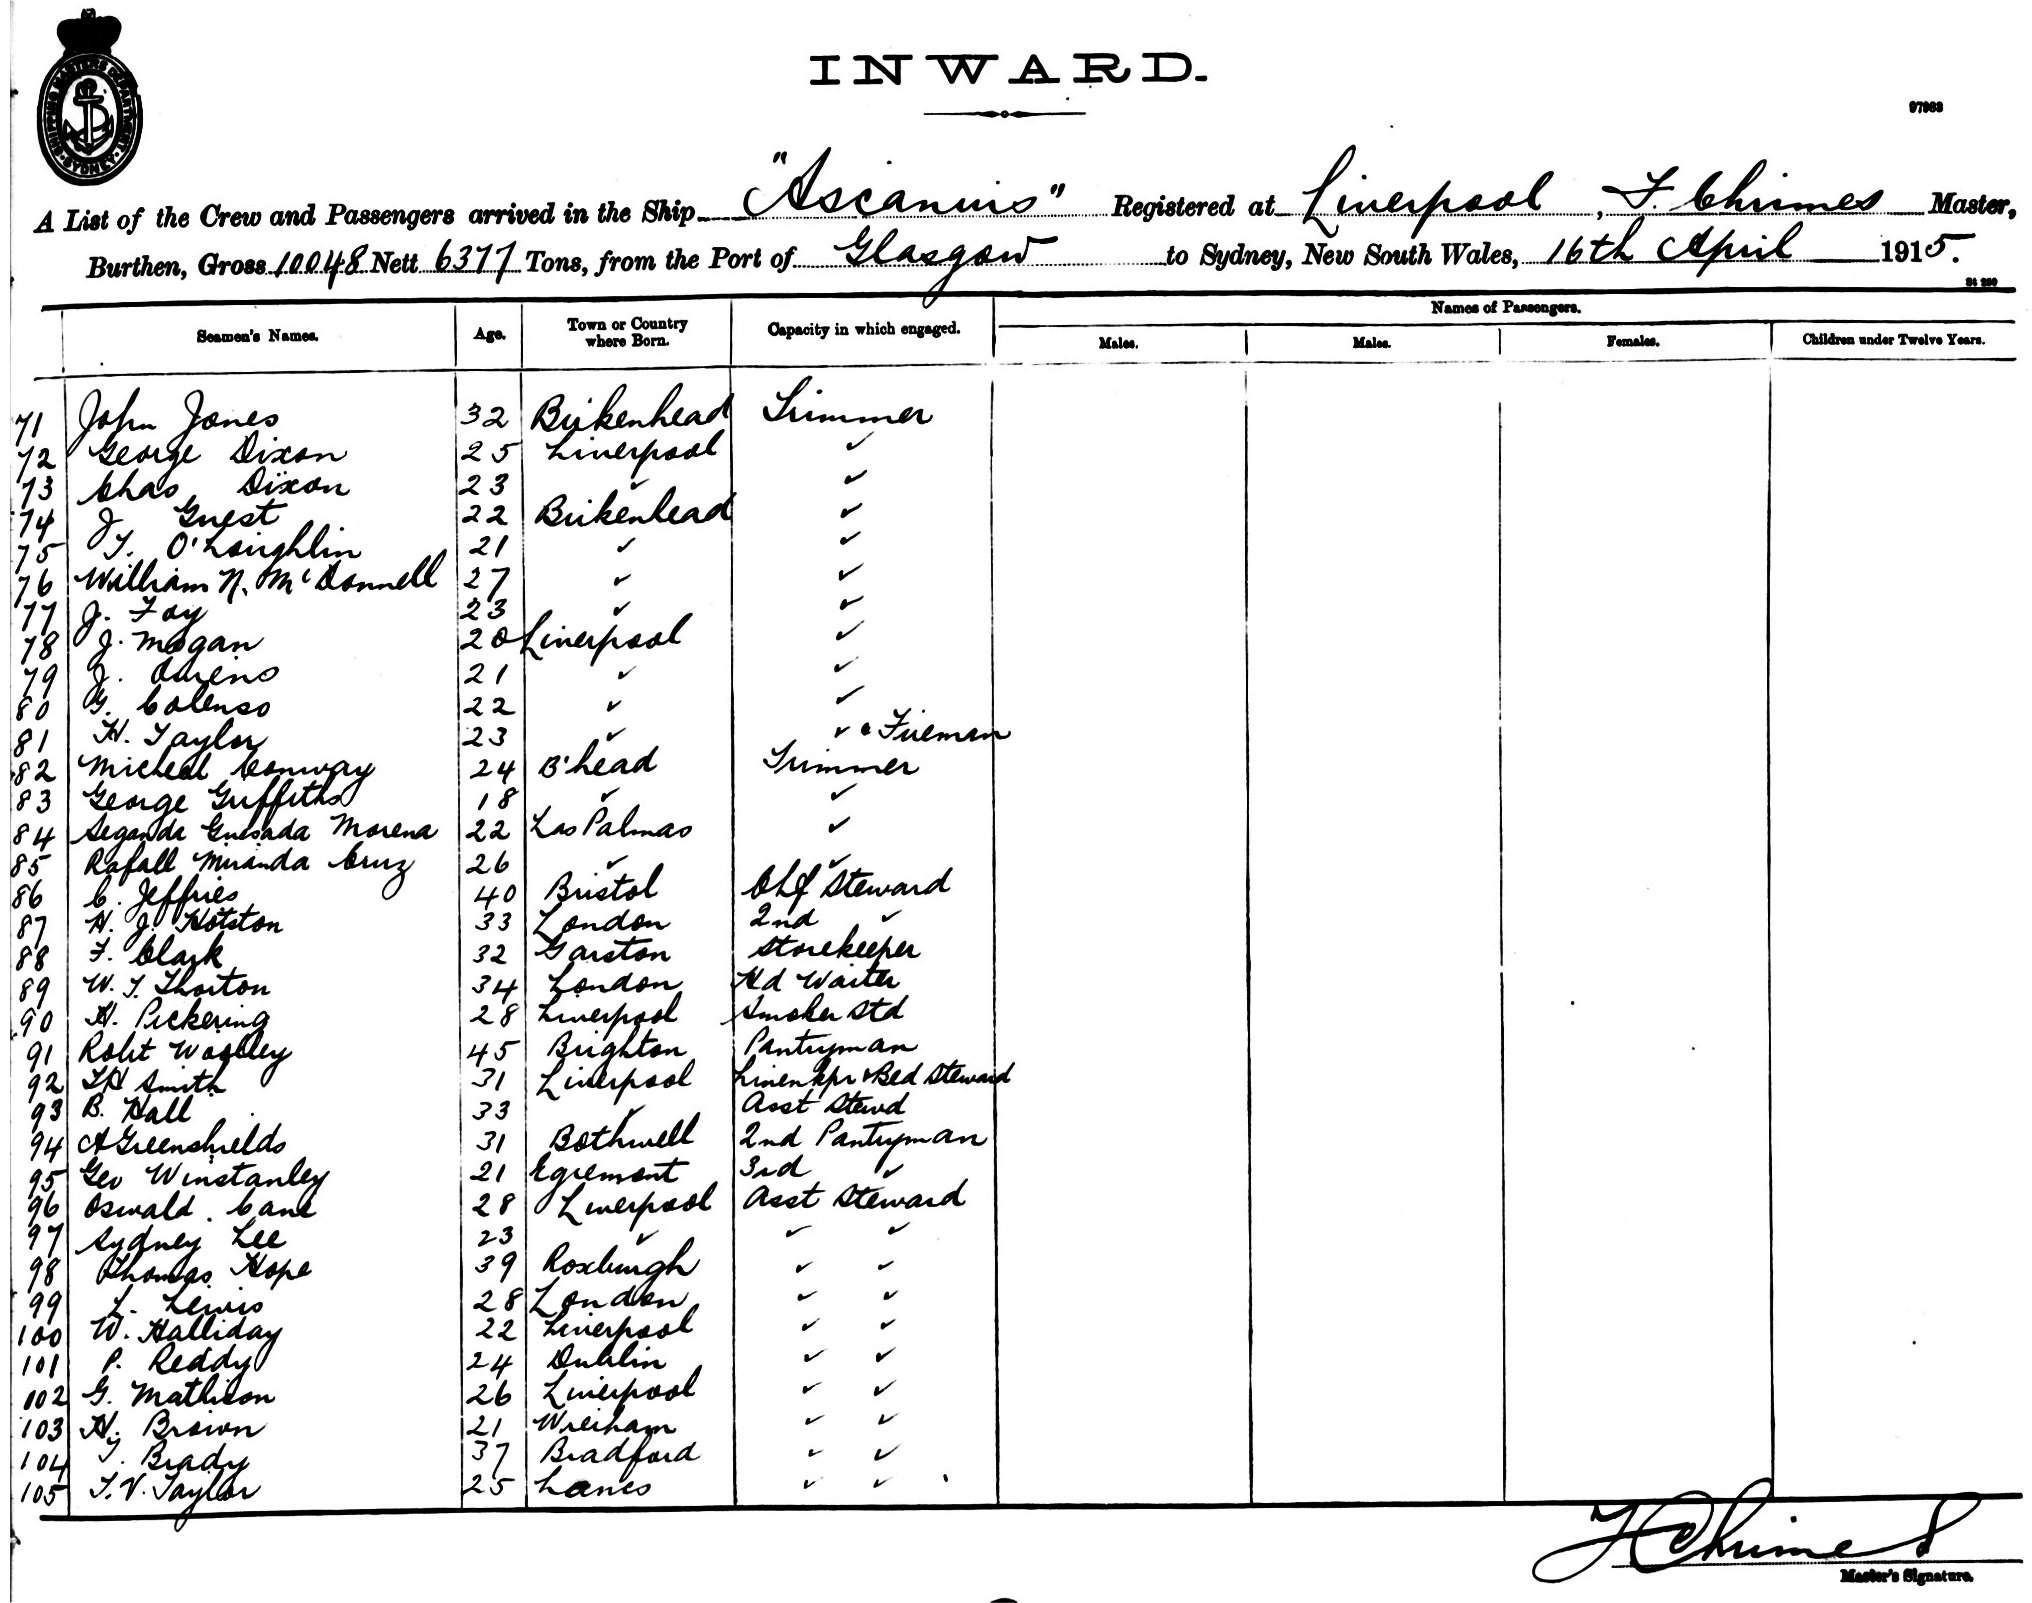 SHIPPING MASTERS DEPARTMENT · SYDNEY ·
INWARD.
97963
A List of the Crew and Passengers arrived in the Ship "Ascanius" Registered at Liverpool, F. Chrimes Master,
Burthen, Gross 10048 Nett 6377 Tons, from the Port of Glasgow to Sydney, New South Wales, 16th April 1915.
Seamen's Names. Age. Town or Country where Born. Capacity in which engaged. Names of Passengers.
Males. Males. Females. Children under Twelve Years.
71 John Jones 32 Birkenhead Trimmer
72 George Dixon 25 Liverpool ✓
73 Chas Dixon 23 ✓ ✓
74 J Guest 22 Birkenhead ✓
75 T. O'Loughlin 21 ✓ ✓
76 William N. McDonnell 27 ✓ ✓
77 J. Foy 23 ✓ ✓
78 J. Mogan 20 Liverpool ✓
79 J. Owens 21 ✓ ✓
80 G. Colenso 22 ✓ ✓
81 H. Taylor 23 ✓ ✓ Fireman
82 Micheal Conway 24 B'head Trimmer
83 George Griffiths 18 ✓ ✓
84 Seganda Guesada Morena 22 Las Palmas ✓
85 Rafall Miranda Cruz 26 ✓ ✓
86 C. Jeffries 40 Bristol Chf Steward
87 H. J. Hotston 33 London 2nd ✓
88 F. Clark 32 Garston Storekeeper
89 W. T. Thorton 34 London Hd Waiter
90 H. Pickering 28 Liverpool Smoker Std
91 Robt Woolley 45 Brighton Pantryman
92 TH Smith 31 Liverpool Linenkpr & Bed Steward
93 B. Hall 33 ✓ Asst Stewd
94 A Greenshields 31 Bothwell 2nd Pantryman
95 Geo Winstanley 21 Egremont 3rd ✓
96 Oswald Cane 28 Liverpool Asst Steward
97 Sydney Lee 23 ✓ ✓ ✓
98 Thomas Hope 39 Roxburgh ✓ ✓
99 L. Lewis 28 London ✓ ✓
100 W. Halliday 22 Liverpool ✓ ✓
101 P. Reddy 24 Dublin ✓ ✓
102 G. Mathison 26 Liverpool ✓ ✓
103 H. Brown 21 Wrexham ✓ ✓
104 T. Brady 37 Bradford ✓ ✓
105 T. V. Taylor 25 Lancs ✓ ✓
F Chrimes
Master's Signature.